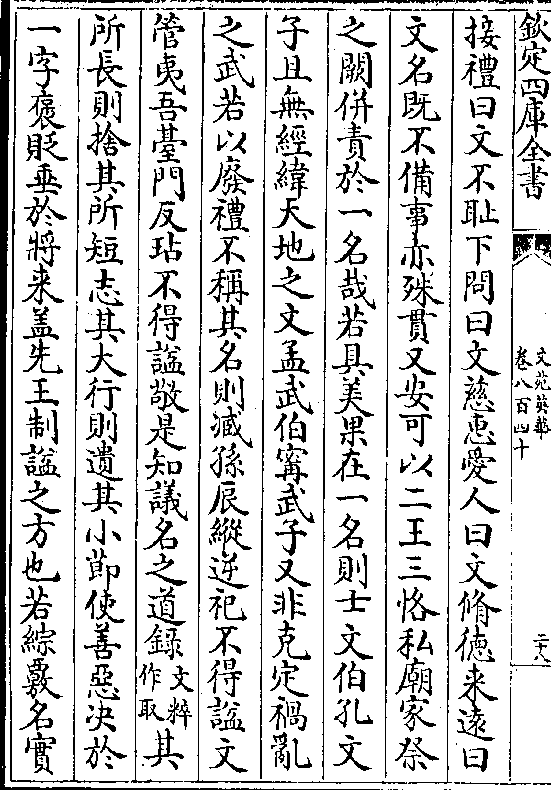 欽定四庫全書
文苑英華
卷八百四十
二十八
接禮曰文不恥下問曰文慈恵愛人曰文脩徳来逺曰
文名既不備事亦殊貫又安可以二王三恪私廟家祭
之闕併責於一名哉若具美果在一名則士文伯孔文
子且無經緯天地之文孟武伯寗武子又非克定禍亂
之武若以廢禮不稱其名則臧孫辰縱逆祀不得諡文
管夷吾臺門反玷不得諡敬是知議名之道錄文粹作取其
所長則捨其所短志其大行則遺其小節使善惡决於
一字褒貶垂於將来盖先王制諡之方也若綜覈名實